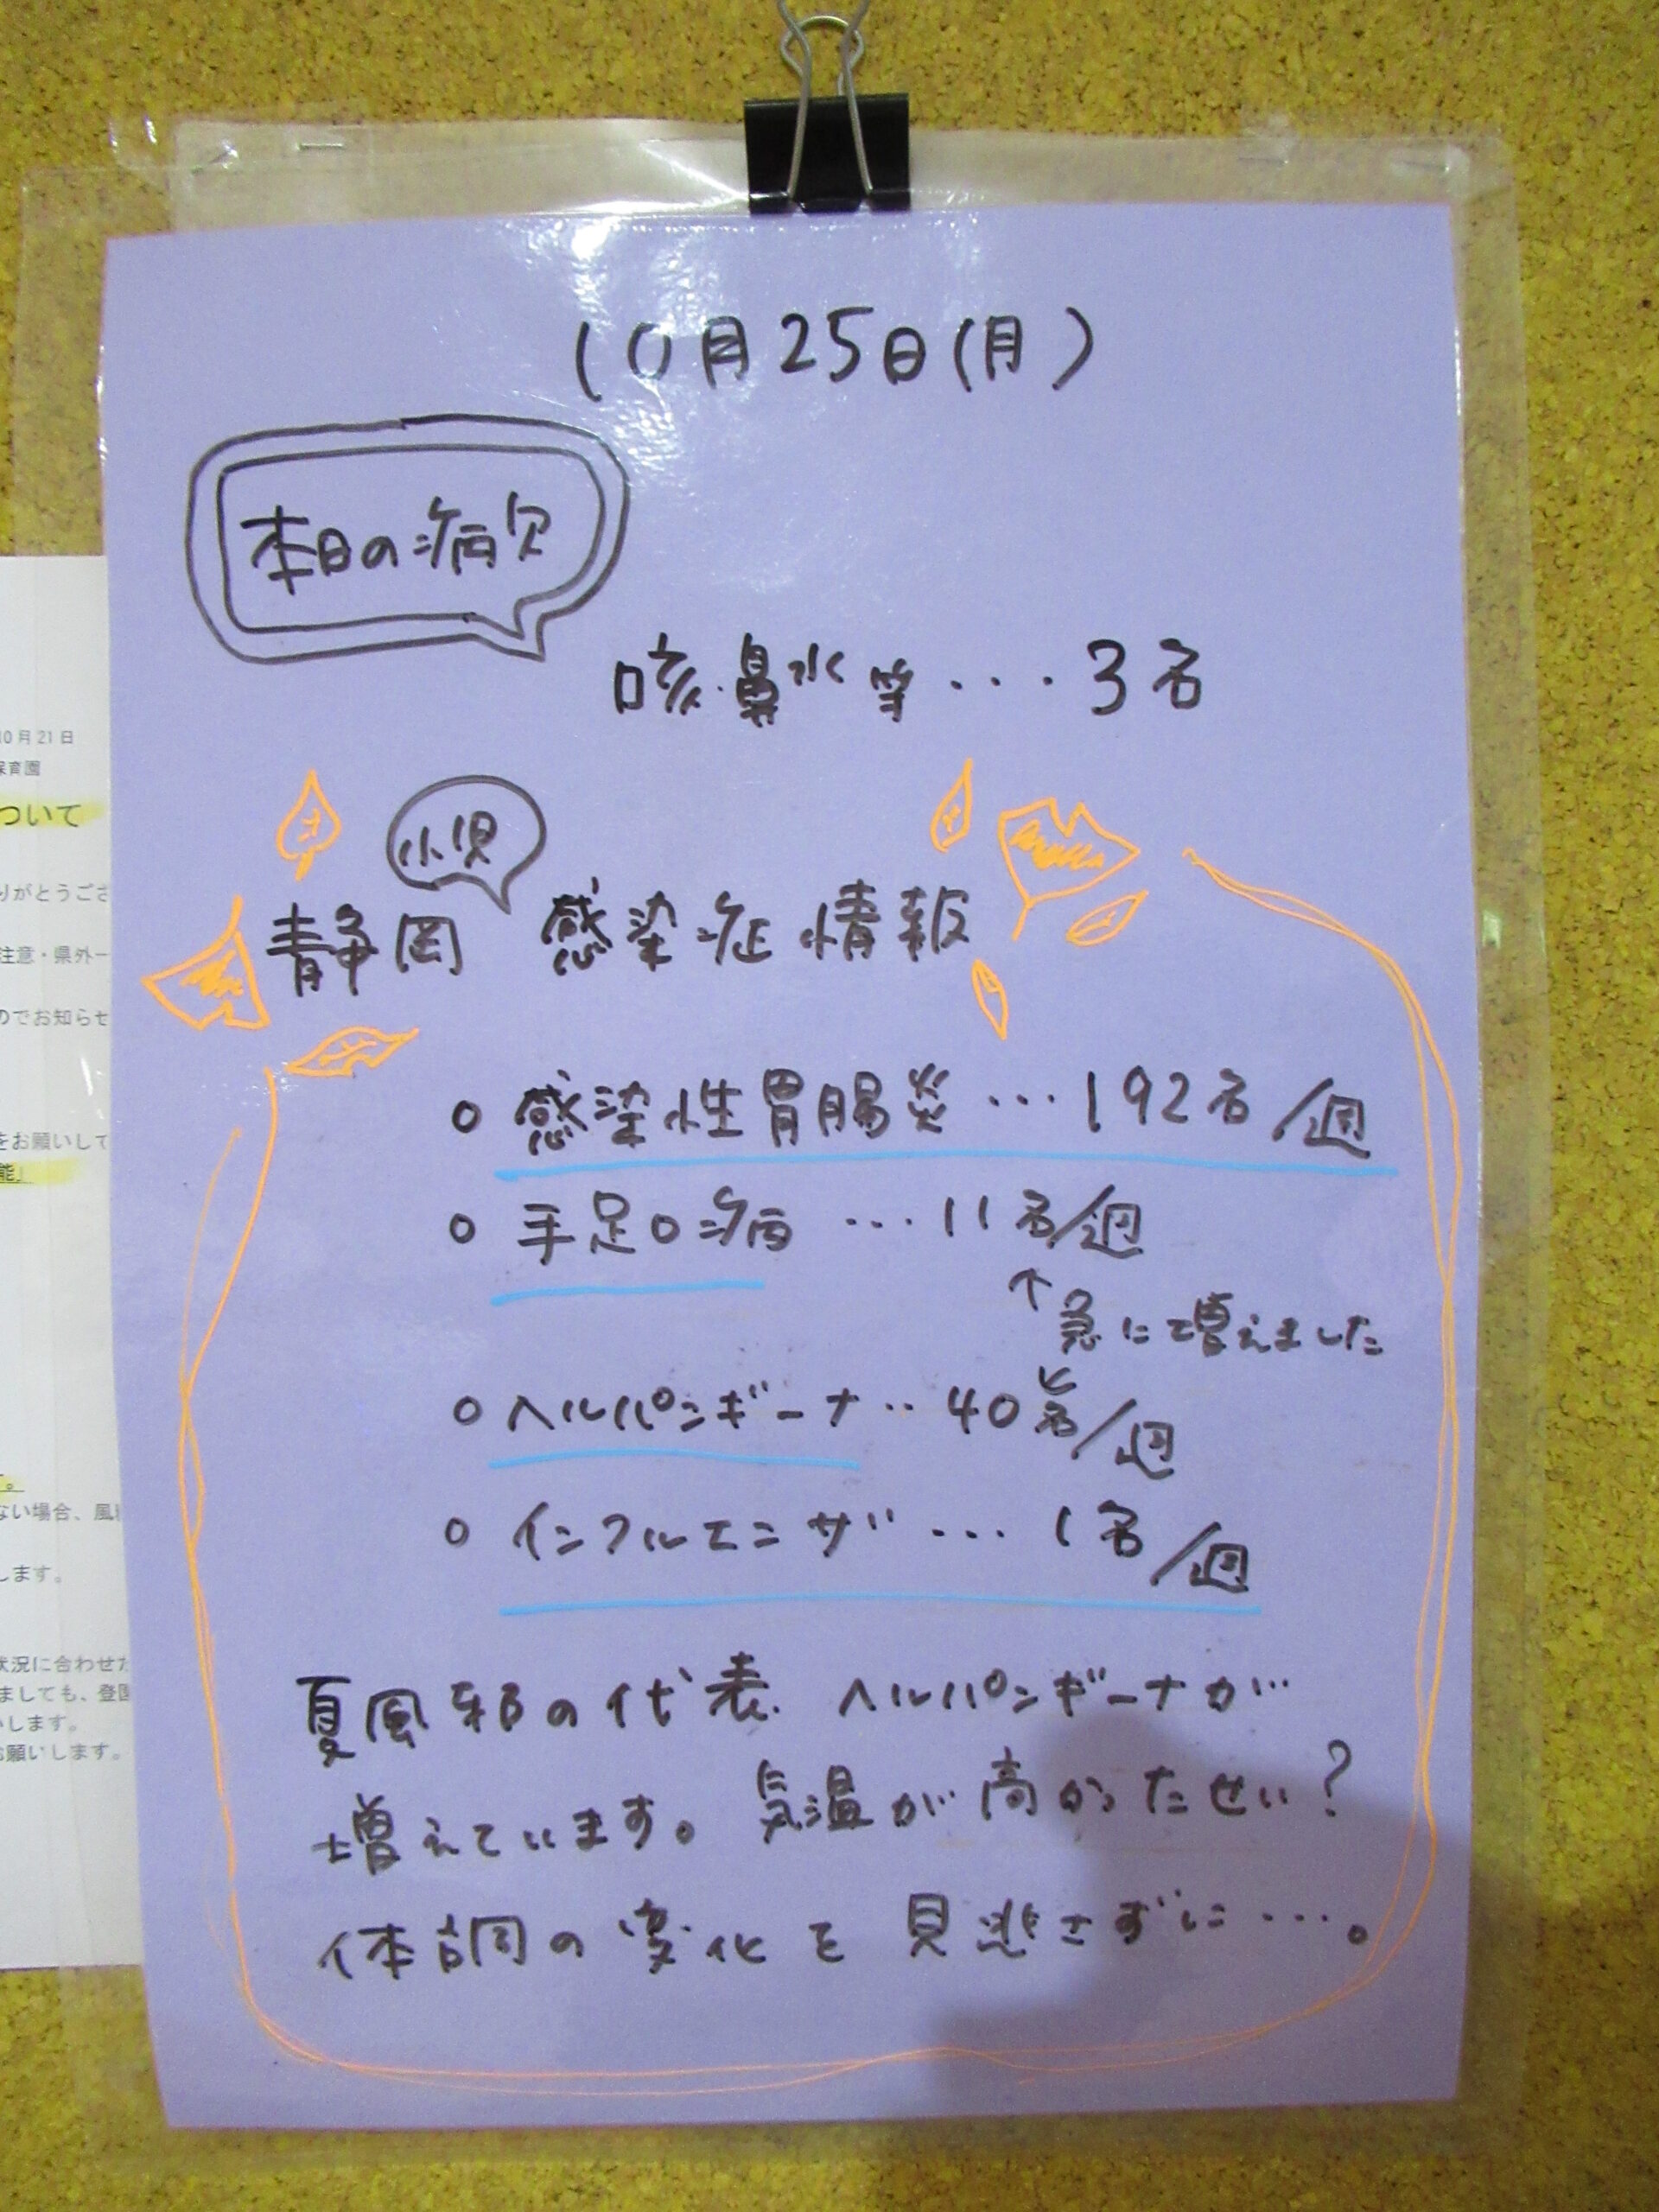 10月25日(月)
本日の病欠
咳・鼻水等・・・3名
小児
静岡 感染症情報
○ 感染性胃腸炎・・・192名/週
○ 手足口病・・・11名/週
↑急に増えました
○ ヘルパンギーナ・・40名/週
○ インフルエンザ・・・1名/週
夏風邪の代表 ヘルパンギーナが
増えています。気温が高かったせい?
体調の変化を見逃さずに・・・。
10月21日
保育園
ついて
りがとうござ
注意・県外
のでお知らせ
をお願いして
能」
す。
ない場合、風
します。
状況に合わせた
ましても、登園
いします。
お願いします。